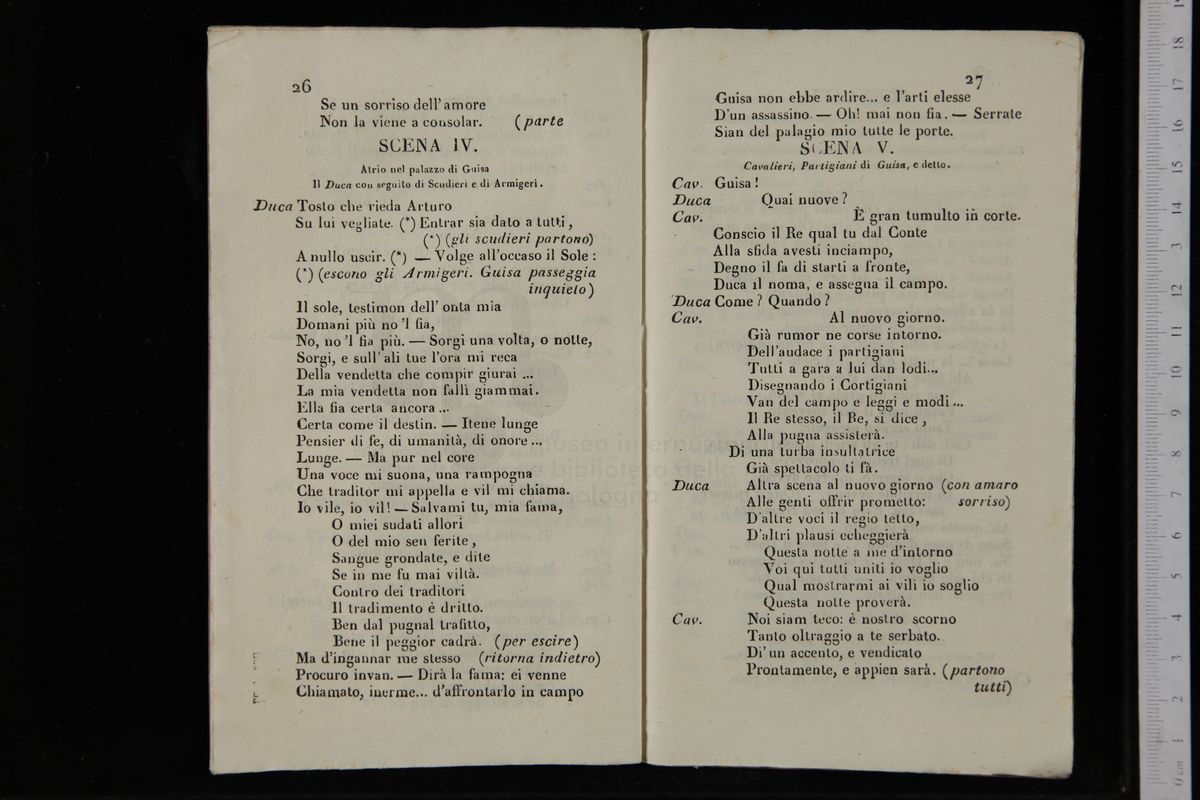 26
Se un sorriso dell'amore
Non la viene a consolar. (parte
SCENA IV.
Atrio nel palazzo di Guisa
Il Duca con seguito di Scudieri e di Armigeri.
Duca Tosto che rieda Arturo
Su lui vegliate. (*) Entrar sia dato a tutti,
(*) (gli scudieri partono)
A nullo uscir. (*) — Volge all'occaso il Sole:
(*) (escono gli Armigeri. Guisa passeggia
inquieto)
Il sole, testimon dell' onta mia
Domani più no 'l fia,
No, no 'l fia più. — Sorgi una volta, o notte,
Sorgi, e sull' ali tue l'ora mi reca
Della vendetta che compir giurai ...
La mia vendetta non fallì giammai.
Ella fia certa ancora ...
Certa come il destin. — Itene lunge
Pensier di fe, di umanità, di onore ...
Lunge. — Ma pur nel core
Una voce mi suona, una rampogna
Che traditor mi appella e vil mi chiama.
Io vile, io vil! — Salvami tu, mia fama,
O miei sudati allori
O del mio sen ferite,
Sangue grondate, e dite
Se in me fu mai viltà.
Contro dei traditori
Il tradimento è dritto.
Ben dal pugnal trafitto,
Bene il peggior cadrà. (per escire)
Ma d'ingannar me stesso (ritorna indietro)
Procuro invan. — Dirà la fama: ei venne
Chiamato, inerme... d'affrontarlo in campo
27
Guisa non ebbe ardire... e l'arti elesse
D'un assassino. — Oh! mai non fia. — Serrate
Sian del palagio mio tutte le porte.
SCENA V.
Cavalieri, Partigiani di Guisa, e detto.
Cav. Guisa!
Duca Quai nuove?
Cav. È gran tumulto in corte.
Conscio il Re qual tu dal Conte
Alla sfida avesti inciampo,
Degno il fa di starti a fronte,
Duca il noma, e assegna il campo.
Duca Come? Quando?
Cav. Al nuovo giorno.
Già rumor ne corse intorno.
Dell'audace i partigiani
Tutti a gara a lui dan lodi...
Disegnando i Cortigiani
Van del campo e leggi e modi ...
Il Re stesso, il Re, si dice,
Alla pugna assisterà.
Di una turba insultatrice
Già spettacolo ti fà.
Duca Altra scena al nuovo giorno (con amaro
Alle genti offrir prometto: sorriso)
D'altre voci il regio tetto,
D'altri plausi echeggierà
Questa notte a me d'intorno
Voi qui tutti uniti io voglio
Qual mostrarmi ai vili io soglio
Questa notte proverà.
Cav. Noi siam teco: è nostro scorno
Tanto oltraggio a te serbato.
Di' un accento, e vendicato
Prontamente, e appien sarà. (partono
tutti)
museo internazionale
e biblioteca della
bologna